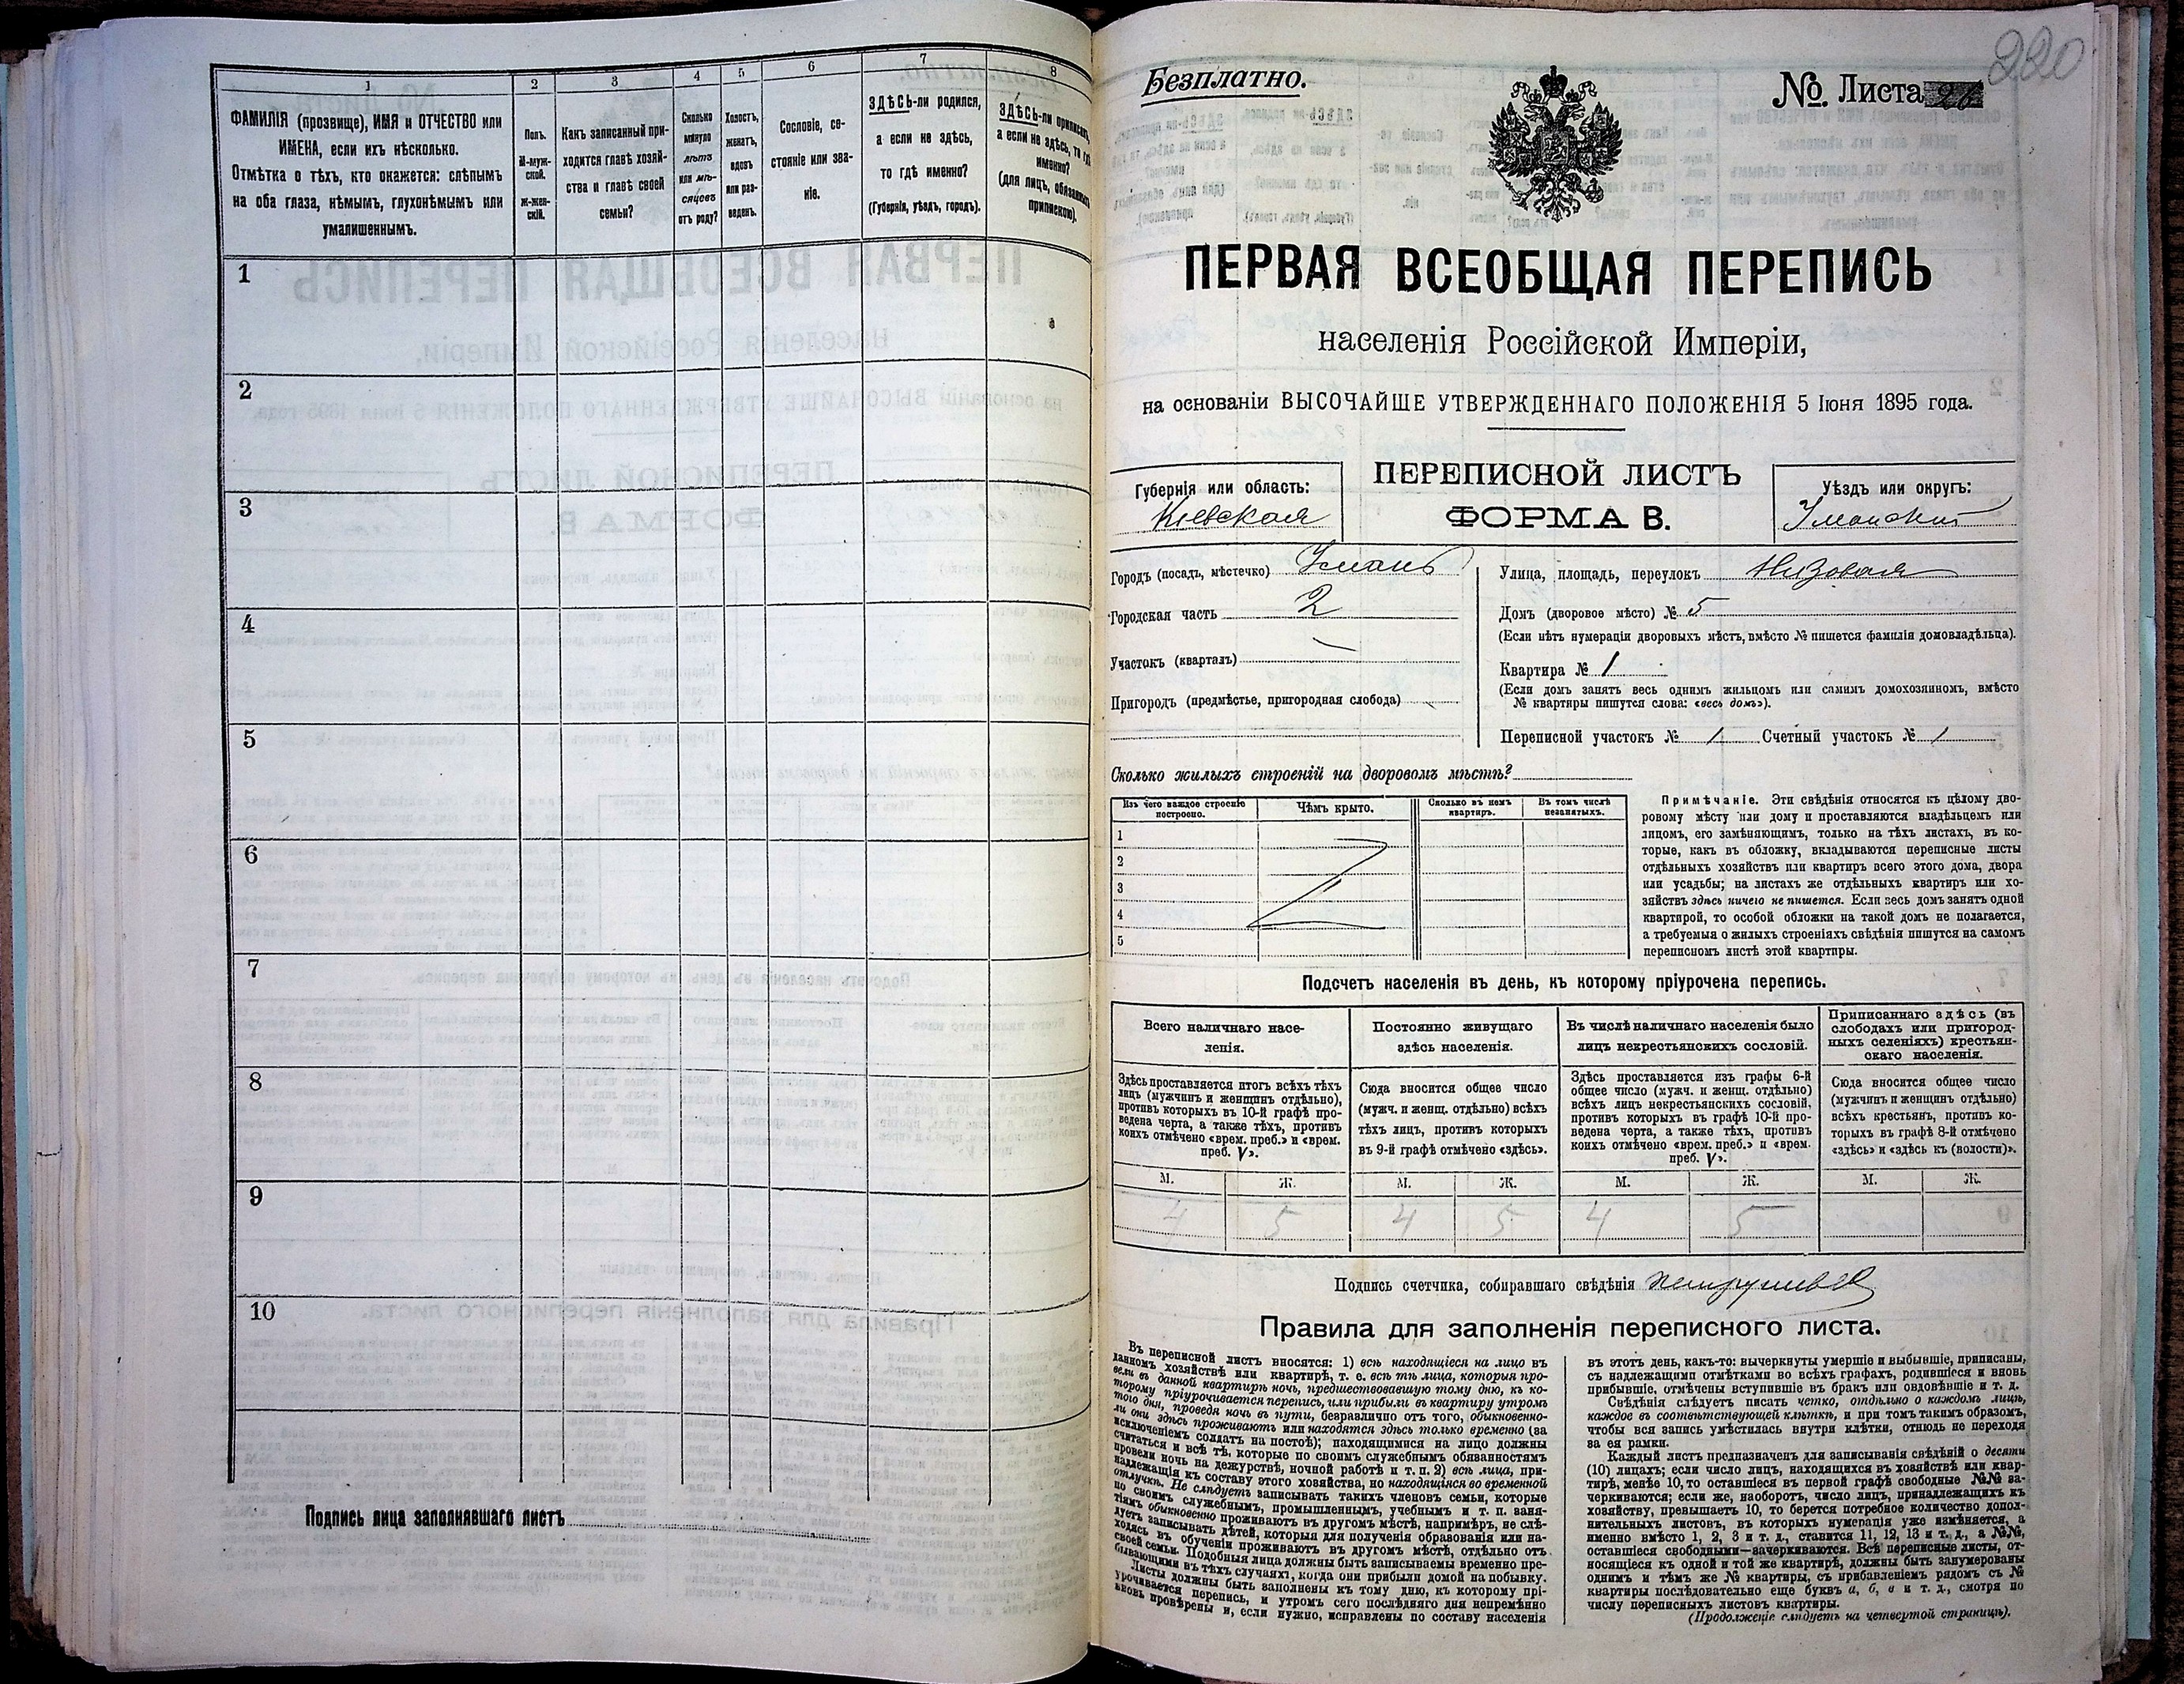 1
2
3
4
5
6
7
8
ФАМИЛІЯ (прозвище), ИМЯ и ОТЧЕСТВО или
ИМЕНА, если ихъ нѣсколько.
Отмѣтка о тѣхъ, кто окажется: слѣпымъ
на оба глаза, нѣмымъ, глухонѣмымъ или
умалишеннымъ.
Полъ.
М-муж-
ской.
Ж-жен-
скій.
Какъ записанный при-
ходится главѣ хозяй-
ства и главѣ своей
семьи?
Сколько
минуло
лѣтъ
или мѣ-
сяцевъ
отъ роду?
Холостъ,
женатъ,
вдовъ
или раз-
веденъ.
Сословіе, со-
стояніе или зва-
ніе.
ЗДѢСЬ-ли родился,
а если не здѣсь,
то гдѣ именно?
(Губернія, уѣздъ, городъ).
ЗДѢСЬ-ли приписанъ,
а если не здѣсь, то гдѣ
именно?
(для лицъ, обязанныхъ
припискою).
1
2
3
4
5
6
7
8
9
10
Подпись лица заполнявшаго листъ
220
Безплатно.
№. Листа 26
ПЕРВАЯ ВСЕОБЩАЯ ПЕРЕПИСЬ
населенія Россійской Имперіи,
на основаніи ВЫСОЧАЙШЕ УТВЕРЖДЕННАГО ПОЛОЖЕНІЯ 5 Іюня 1895 года.
Губернія или область:
Кіевская
ПЕРЕПИСНОЙ ЛИСТЪ
ФОРМА В.
Уѣздъ или округъ:
Уманскій
Городъ (посадъ, мѣстечко) Умань
Городская часть 2
Участокъ (кварталъ)
Пригородъ (предмѣстье, пригородная слобода)
Улица, площадь, переулокъ Низовая
Домъ (дворовое мѣсто) № 5
(Если нѣтъ нумераціи дворовыхъ мѣстъ, вмѣсто № пишется фамилія домовладѣльца).
Квартира № 1
(Если домъ занятъ весь однимъ жильцомъ или самимъ домохозяиномъ, вмѣсто
№ квартиры пишутся слова: «весь домъ»).
Переписной участокъ № 1 Счетный участокъ № 1
Сколько жилыхъ строеній на дворовомъ мѣстѣ?
Изъ чего каждое строеніе
построено.
Чѣмъ крыто.
Сколько въ немъ
квартиръ.
Въ томъ числѣ
незанятыхъ.
1
2
3
4
5
Примѣчаніе. Эти свѣдѣнія относятся къ цѣлому дво-
ровому мѣсту или дому и проставляются владѣльцемъ или
лицомъ, его замѣняющимъ, только на тѣхъ листахъ, въ ко-
торые, какъ въ обложку, вкладываются переписные листы
отдѣльныхъ хозяйствъ или квартиръ всего этого дома, двора
или усадьбы; на листахъ же отдѣльныхъ квартиръ или хо-
зяйствъ здѣсь ничего не пишется. Если весь домъ занятъ одной
квартирой, то особой обложки на такой домъ не полагается,
а требуемыя о жилыхъ строеніяхъ свѣдѣнія пишутся на самомъ
переписномъ листѣ этой квартиры.
Подсчетъ населенія въ день, къ которому пріурочена перепись.
Всего наличнаго насе-
ленія.
Постоянно живущаго
здѣсь населенія.
Въ числѣ наличнаго населенія было
лицъ некрестьянскихъ сословій.
Приписаннаго здѣсь (въ
слободахъ или пригород-
ныхъ селеніяхъ) крестьян-
скаго населенія.
Здѣсь проставляется итогъ всѣхъ тѣхъ
лицъ (мужчинъ и женщинъ отдѣльно),
противъ которыхъ въ 10-й графѣ про-
ведена черта, а также тѣхъ, противъ
коихъ отмѣчено «врем. преб.» и «врем.
преб. V».
Сюда вносится общее число
(мужч. и женщ. отдѣльно) всѣхъ
тѣхъ лицъ, противъ которыхъ
въ 9-й графѣ отмѣчено «здѣсь».
Здѣсь проставляется изъ графы 6-й
общее число (мужч. и женщ. отдѣльно)
всѣхъ лицъ некрестьянскихъ сословій,
противъ которыхъ въ графѣ 10-й про-
ведена черта, а также тѣхъ, противъ
коихъ отмѣчено «врем. преб.» и «врем.
преб. V».
Сюда вносится общее число
(мужчинъ и женщинъ отдѣльно)
всѣхъ крестьянъ, противъ ко-
торыхъ въ графѣ 8-й отмѣчено
«здѣсь» и «здѣсь къ (волости)».
М. Ж. М. Ж. М. Ж. М. Ж.
4 5 4 5 4 5
Подпись счетчика, собиравшаго свѣдѣнія
Правила для заполненія переписного листа.
Въ переписной листъ вносятся: 1) всѣ находящіеся на лицо въ
данномъ хозяйствѣ или квартирѣ, т. е. всѣ тѣ лица, которыя про-
вели въ данной квартирѣ ночь, предшествовавшую тому дню, къ ко-
торому пріурочивается перепись, или прибыли въ квартиру утромъ
того дня, проведя ночь въ пути, безразлично отъ того, обыкновенно-
ли они здѣсь проживаютъ или находятся здѣсь только временно (за
исключеніемъ солдатъ на постоѣ); находящимися на лицо должны
считаться и всѣ тѣ, которые по своимъ служебнымъ обязанностямъ
провели ночь на дежурствѣ, ночной работѣ и т. п. 2) всѣ лица, при-
надлежащія къ составу этого хозяйства, но находящіяся во временной
отлучкѣ. Не слѣдуетъ записывать такихъ членовъ семьи, которые
по своимъ служебнымъ, промышленнымъ, учебнымъ и т. п. заня-
тіямъ обыкновенно проживаютъ въ другомъ мѣстѣ, напримѣръ, не слѣ-
дуетъ записывать дѣтей, которыя для полученія образованія или на-
ходясь въ обученіи проживаютъ въ другомъ мѣстѣ, отдѣльно отъ
своей семьи. Подобныя лица должны быть записываемы временно пре-
бывающими въ тѣхъ случаяхъ, когда они прибыли домой на побывку.
Листы должны быть заполнены къ тому дню, къ которому прі-
урочивается перепись, и утромъ сего послѣдняго дня непремѣнно
вновь провѣрены и, если нужно, исправлены по составу населенія
въ этотъ день, какъ-то: вычеркнуты умершіе и выбывшіе, приписаны,
съ надлежащими отмѣтками во всѣхъ графахъ, родившіеся и вновь
прибывшіе, отмѣчены вступившіе въ бракъ или овдовѣвшіе и т. д.
Свѣдѣнія слѣдуетъ писать четко, отдѣльно о каждомъ лицѣ,
каждое въ соотвѣтствующей клѣткѣ, и при томъ такимъ образомъ,
чтобы вся запись умѣстилась внутри клѣтки, отнюдь не переходя
за ея рамки.
Каждый листъ предназначенъ для записыванія свѣдѣній о десяти
(10) лицахъ; если число лицъ, находящихся въ хозяйствѣ или квар-
тирѣ, менѣе 10, то оставшіеся въ первой графѣ свободные №№ за-
черкиваются; если же, наоборотъ, число лицъ, принадлежащихъ къ
хозяйству, превышаетъ 10, то берется потребное количество допол-
нительныхъ листовъ, въ которыхъ нумерація уже измѣняется, а
именно вмѣсто 1, 2, 3 и т. д., ставится 11, 12, 13 и т. д., а №№,
оставшіеся свободными—зачеркиваются. Всѣ переписные листы, от-
носящіеся къ одной и той же квартирѣ, должны быть занумерованы
однимъ и тѣмъ же № квартиры, съ прибавленіемъ рядомъ съ №
квартиры послѣдовательно еще буквъ а, б, в и т. д., смотря по
числу переписныхъ листовъ квартиры.
(Продолженіе слѣдуетъ на четвертой страницѣ).